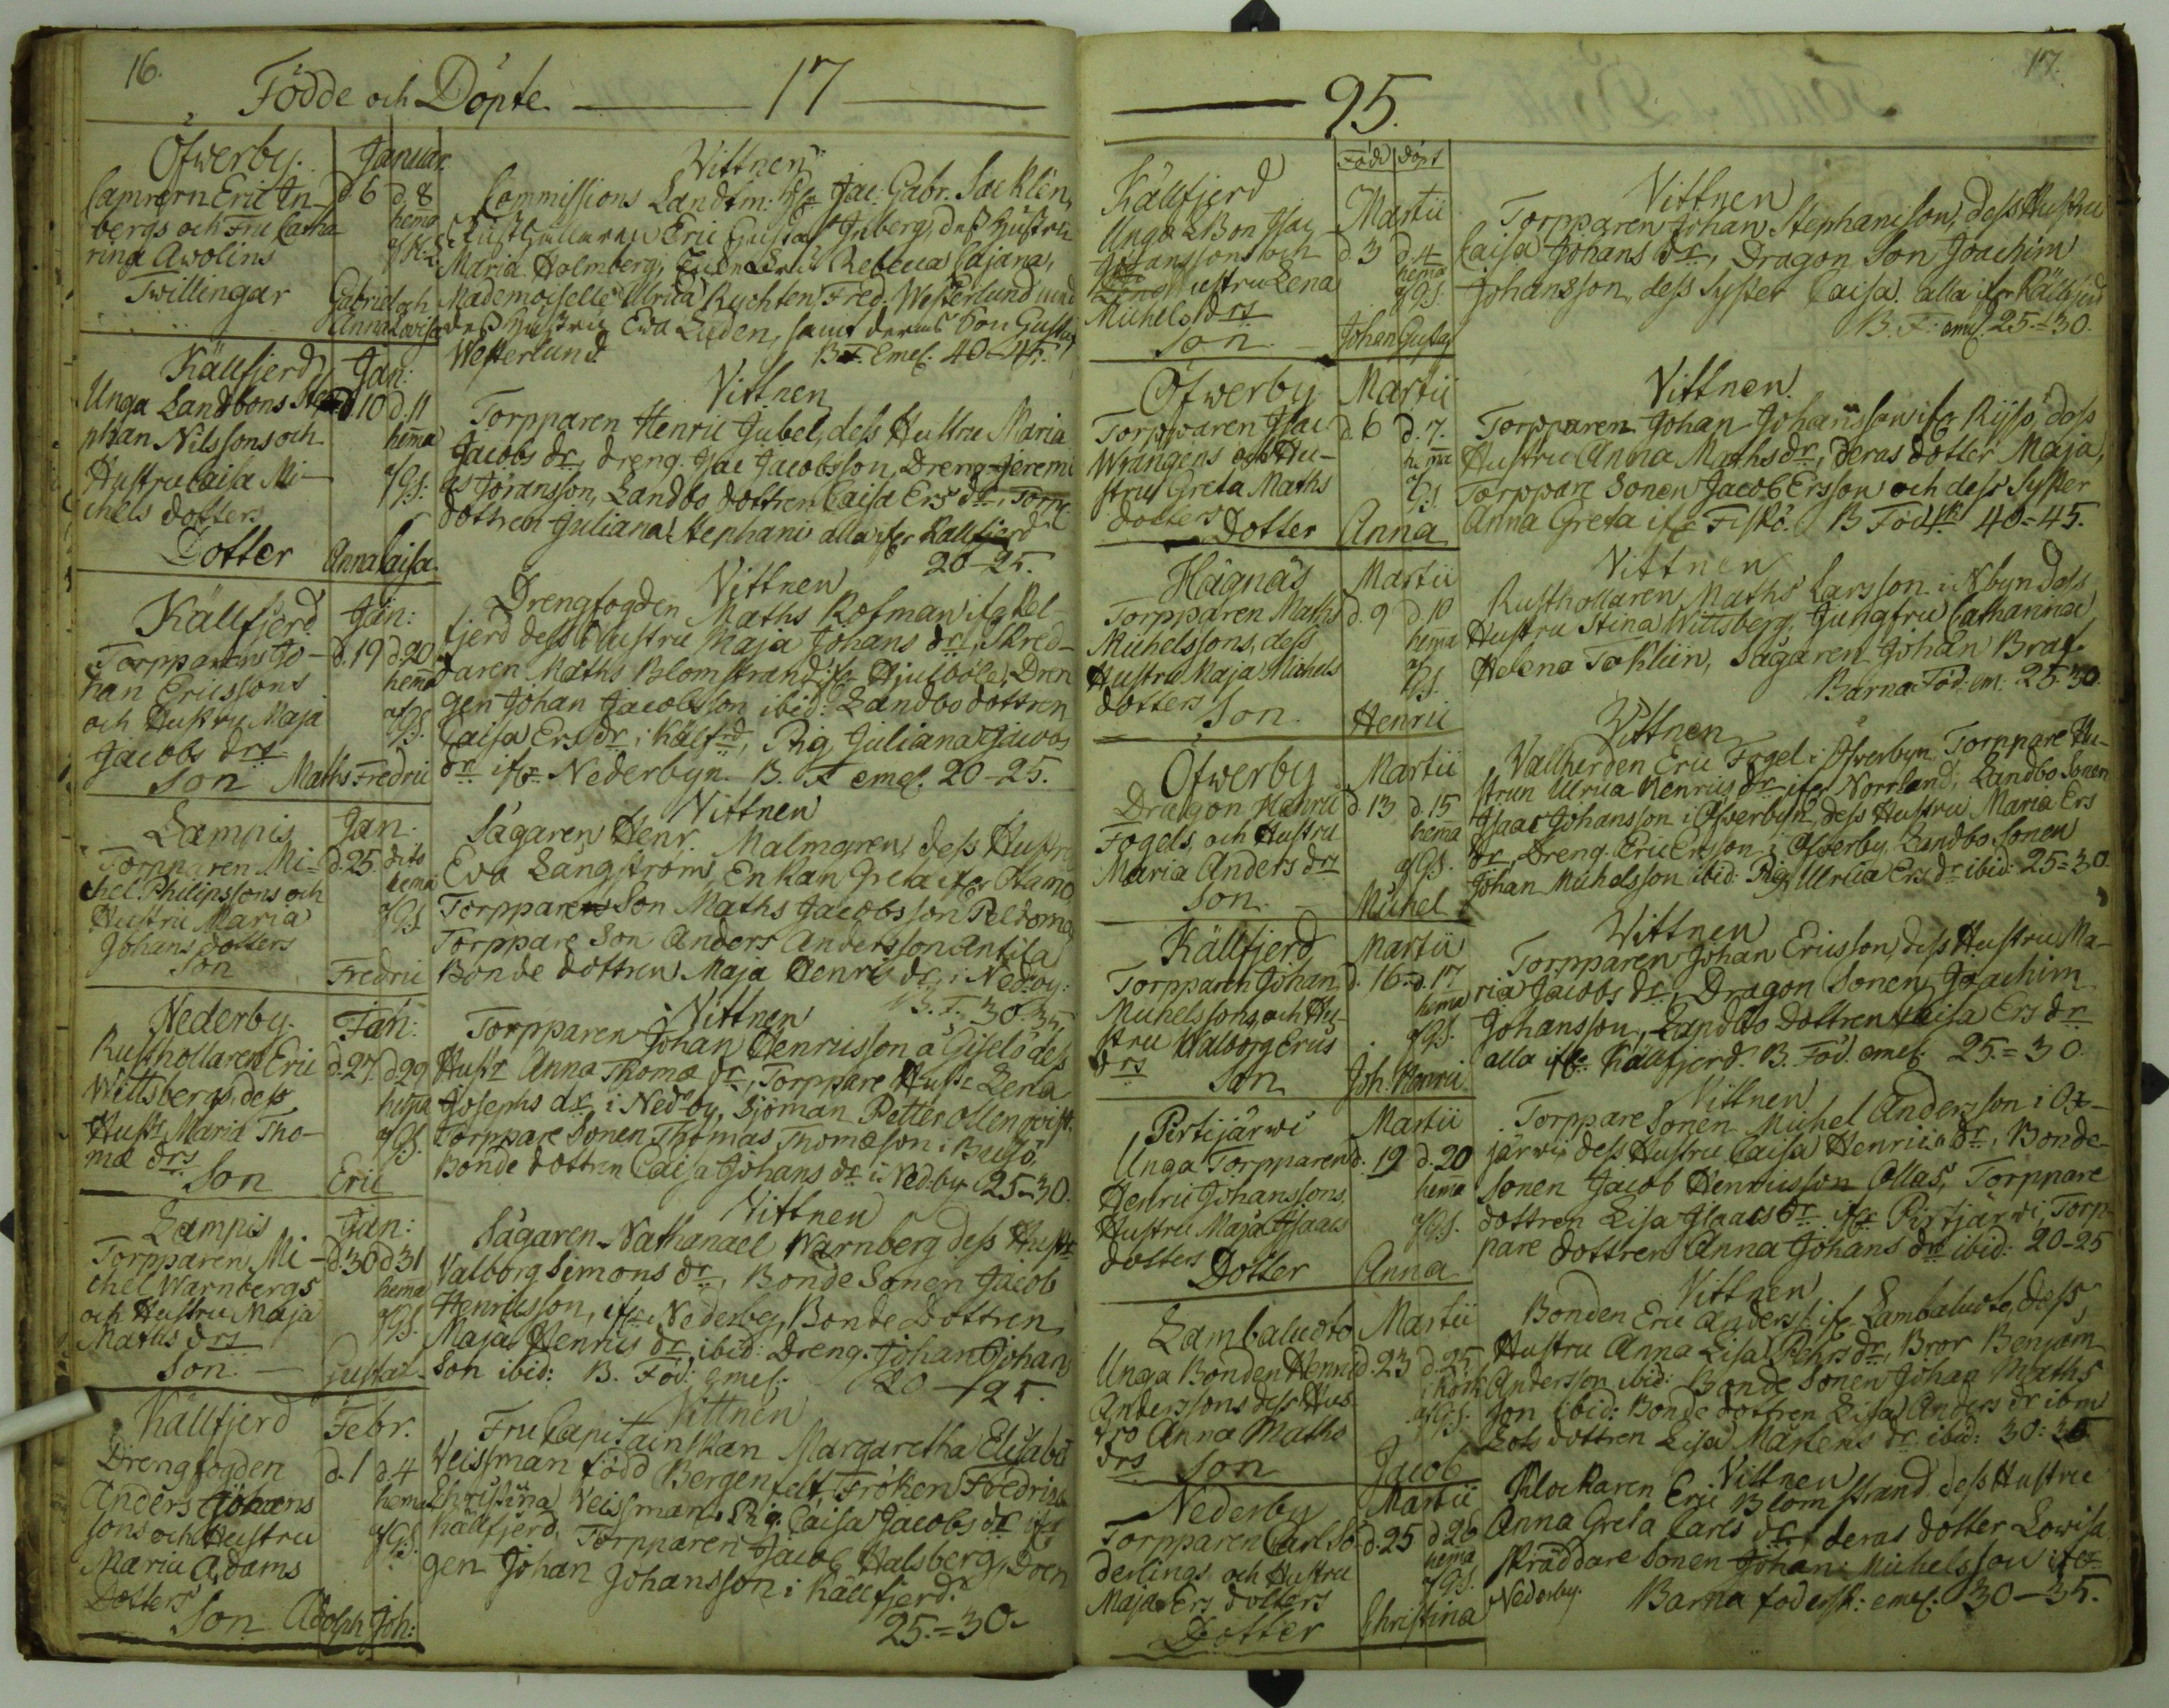 16.
Födde och Döpte 17
Öfwerby. Januar.
Camrern Eric In- d. 6 d. 8
bergs och Fru Catha- hema
rina Awolins
Twillingar Gabriel och
Anna Lovisa
Vittnen
Commissions Landtm: Jac: Gabr. Sacklén,
Eric Gustaf Inberg, dess Hustru
Maria Holmberg, Rebecca Cajana,
Mademoiselle Ulrica Rychten, Fred. Westerlund med
dess Hustru Eva Luden, samt deras Son Gustaf
Westerlund. B. F. emel. 40-45.
Källfjerd Jan:
Unga Landbons Ste- d. 10 d. 11
phan Nilssons och hema
Hustru Caisa Mi- af GS.
chels dotters
Dotter Anna Caisa.
Vittnen
Torpparen Henric Jubel, dess Hustru Maria
Jacobs dr, dreng. Isac Jacobsson, Dreng Jeremi
as Jöransson, Landbo dottren Caisa Ers dr, Torp.
dottren Juliana Stephans alla ifr Kallfjerd
20-25.
Källfjerd Jan:
Torpparens Jo- d. 19 d. 20
han Ericssons hema
och Hustru Maja af GS.
Jacobs drs
Son Maths Fredric
Vittnen
Drengfogden Maths Rofman ifr Kel-
fjerd dess Hustru Maja Johans dr, Skred-
daren Maths Blomstrand ifr Hjulböle, Dren
gen Johan Jacobsson ibid: Landbo dottren
Caisa Ers dr i Källfrd, Pig. Juliana Jacobs
dr ifr Nederbyn. B. F. emel. 20-25.
Lampis Jan.
Torpparen Mi- d. 25. dito
chel Philipssons och hema
Hustru Maria af GS.
Johans dotters
Son Fredric
Vittnen
Sågaren Henr. Malmgren, dess Hustru
Eva Långström, Enkan Greta ifr Otamo,
Torppare Son Maths Jacobsson Peldoma,
Torppare Son Anders Andersson Antila
Bonde dottren Maja Henrics dr i Nedby:
B. F. 30-35.
Nederby. Jan:
Rusthollaren Eric d. 27. d. 29
Wittsbergs, dess hema
Hustr Maria Tho- af GS.
mæ drs
Son Eric
Vittnen
Torpparen Johan Henricsson å Giselö dess
Hustr Anna Thomæ dr, Torppare Hustr Lena
Josephs dr i Nedby, Sjöman Petter Ollenqvist.
Torppare Sonen Thomas Thomæson i Busö,
Bonde dottren Caisa Johans dr i Nedby 25-30.
Lampis Jan:
Torpparen Mi- d. 30 d. 31
chel Warnbergs hema
och Hustru Maja af GS.
Maths drs
Son. Gustaf.
Vittnen
Sågaren Nathanael Warnberg dess Hustr
Valborg Simons dr, Bonde Sonen Jacob
Henricsson, ifr Nederby, Bonde Dottren
Maja Henrics dr ibid: Dreng. Johan Johans
Son ibid: B. Föd: emel. 20-25.
Källfjerd Febr.
Drengfogden d. 1 d. 4
Anders Johans hema
sons och Hustru af GS.
Maria Adams
Dotters
Son Adolph Joh:
Vittnen
Fru Capitainskan Margaretha Elisabet
Veissman född Bergenfelt, Fröken Fredrica
Christina Veissman, Pig. Caisa Jacobs dr ifr
Källfjerd, Torpparen Jacob Halsberg, Dren
gen Johan Johansson i Källfjerd.
25.=30.
17.
95.
Född döpt
Källfjerd Martii
Unga LBon Isac d. 3 d. 4
Johanssons och hema
Hustru Lena af GS.
Michels drs
Son. Johan Gustaf
Vittnen
Torpparen Johan Stephansson, dess Hustru
Caisa Johans dr, Dragon Son Joachim
Johansson, dess Syster Caisa. alla ifr Källfjerd
B. F: emel. 25-30.
Öfwerby Martii
Torpparen Isac d. 6 d. 7.
Wrangens och Hu- hema
stru Greta Maths af GS.
dotters
Dotter Anna
Vittnen.
Torpparen Johan Johansson ifr Rijsö, dess
Hustru Anna Maths dr, deras dotter Maja,
Torppare Sonen Jacob Ersson och dess Syster
Anna Greta ifr Fiskö. B Föd. 40=45.
Hagnäs Martii
Torpparen Maths d. 9 d. 10
Michelssons, dess hema
Hustru Maja Michels af GS.
dotters
Son. Henric
Vittnen
Rusthollaren Maths Larsson i Nbyn dess
Hustru Stina Wittsberg, Jungfru Catharina
Helena Tocklin, Sågaren Johan Braf.
Barna Föd: em: 25-30.
Öfwerby Martii
Dragon Henric d. 13 d. 15
Fogels, och Hustru hema
Maria Anders drs af GS.
Son. Michel
Vittnen
Vallherden Eric Fogel i Öfverbyn, Torppare Hu-
strun Ulrica Henrics dr ifr Norrland, Landbo Sonen
Isaac Johansson i Öfverbyn, dess Hustru Maria Ers
dr, Dreng. Eric Ersson i Öfverby, Landbo Sonen
Johan Michelsson ibid: Pig. Ulrica Ers dr ibid: 25=30.
Källfjerd Martii
Torpparen Johan d. 16. d. 17
Michelssons, och Hu- hema
stru Walborg Erics af GS.
drs
Son Joh. Henric
Vittnen
Torpparen Johan Ericsson, dess Hustru Ma-
ria Jacobs dr, Dragon Sonen Joachim
Johansson, Landbo Dottren Caisa Ers dr
alla ifr Källfjerd. B. Föd. emel: 25.=30.
Pirtijärwi Martii
Unga Torpparen d. 19 d. 20
Henric Johanssons, hema
Hustru Maja Isaacs af GS.
dotters
Dotter Anna
Vittnen
Torppare Sonen Michel Andersson i Ox-
järwi dess Hustru Caisa Henrics dr, Bonde-
Sonen Jacob Henricsson Ollas, Torppare
dottren Lisa Isaacs dr ifr Pirtjärwi, Torp-
pare dottren Anna Johans dr ibid: 20-25
Lambaludto Martii
Unga Bonden Henric d. 23 d. 25
Anderssons dess Hus- i Körk
trs Anna Maths af GS.
drs
Son Jacob
Vittnen
Bonden Eric Anderss: ifr Lambaludto, dess
Hustru Anna Lisa Pehrs dr, Bror Benjam
Andersson ibid: Bonde Sonen Johan Maths
son ibid: Bonde dottren Lisa Anders dr ibm
Lots dottren Lisa Mårtens dr ibid: 30:35
Nederby Martii
Torpparen Carl Sö- d. 25 d. 26
derlings och Hustru hema
Maja Ers dotters af GS.
Dotter Christina
Vittnen
Klockaren Eric Blomstrand. dess Hustru
Anna Greta Carls dr, deras dotter Lowisa
Skräddare Sonen Johan Michelsson ifr
Nederby. Barna födersk: emel: 30-35.